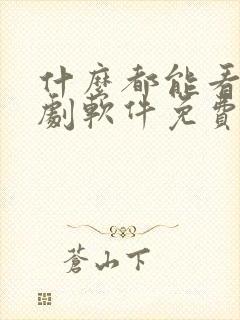 什麼都能看
劇軟件免費
蒼山下